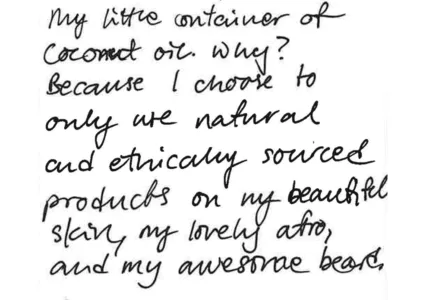 My little container of
Coconut oil. Why?
Because I choose to
only use natural
and ethically sourced
products on my beautiful
skin, my lovely afro,
and my awesome beard.